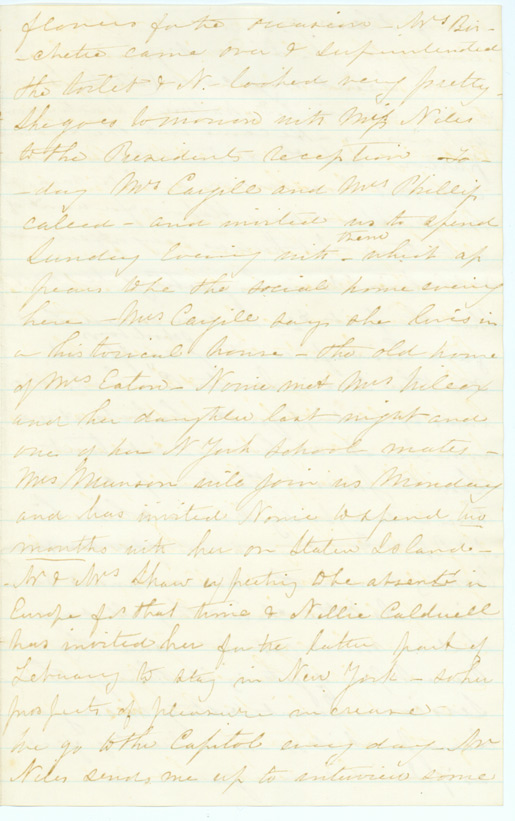 flowers for the occasion - Mrs Bir-
chette came over & superintended
the toilet & N. looked very pretty -
She goes tomorrow with Miss Niles
to the Presidents reception To-
-day Mrs Cargill and Mrs Phillips
called - and invited us to spend
Sunday Evening with them - which ap
pears to be the social home evening
here - Mrs Cargill says she lives in
a historical house - the old home
of Mrs Eaton - Nonie met Mrs Wilcox
and her daughter last night and
one of her N York school mates -
Mrs Munson will join us Monday
and has invited Nonie to spend two
months with her on Staten Island -
Mr & Mrs Shaw expecting to be absent in
Europe for that time & Nellie Caldwell
has invited her for the latter part of
February to stay in New York - so her
prospects of pleasure increase -
We go to the Capitol every day - Mr
Niles sends me up to interview some